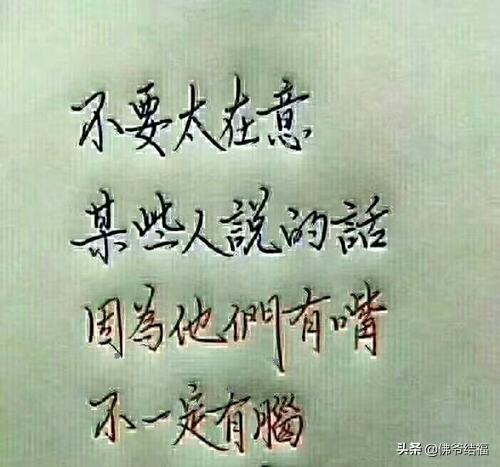 不要太在意
某些人說的話
因為他們有嘴
不一定有腦
头条 @佛爷结福